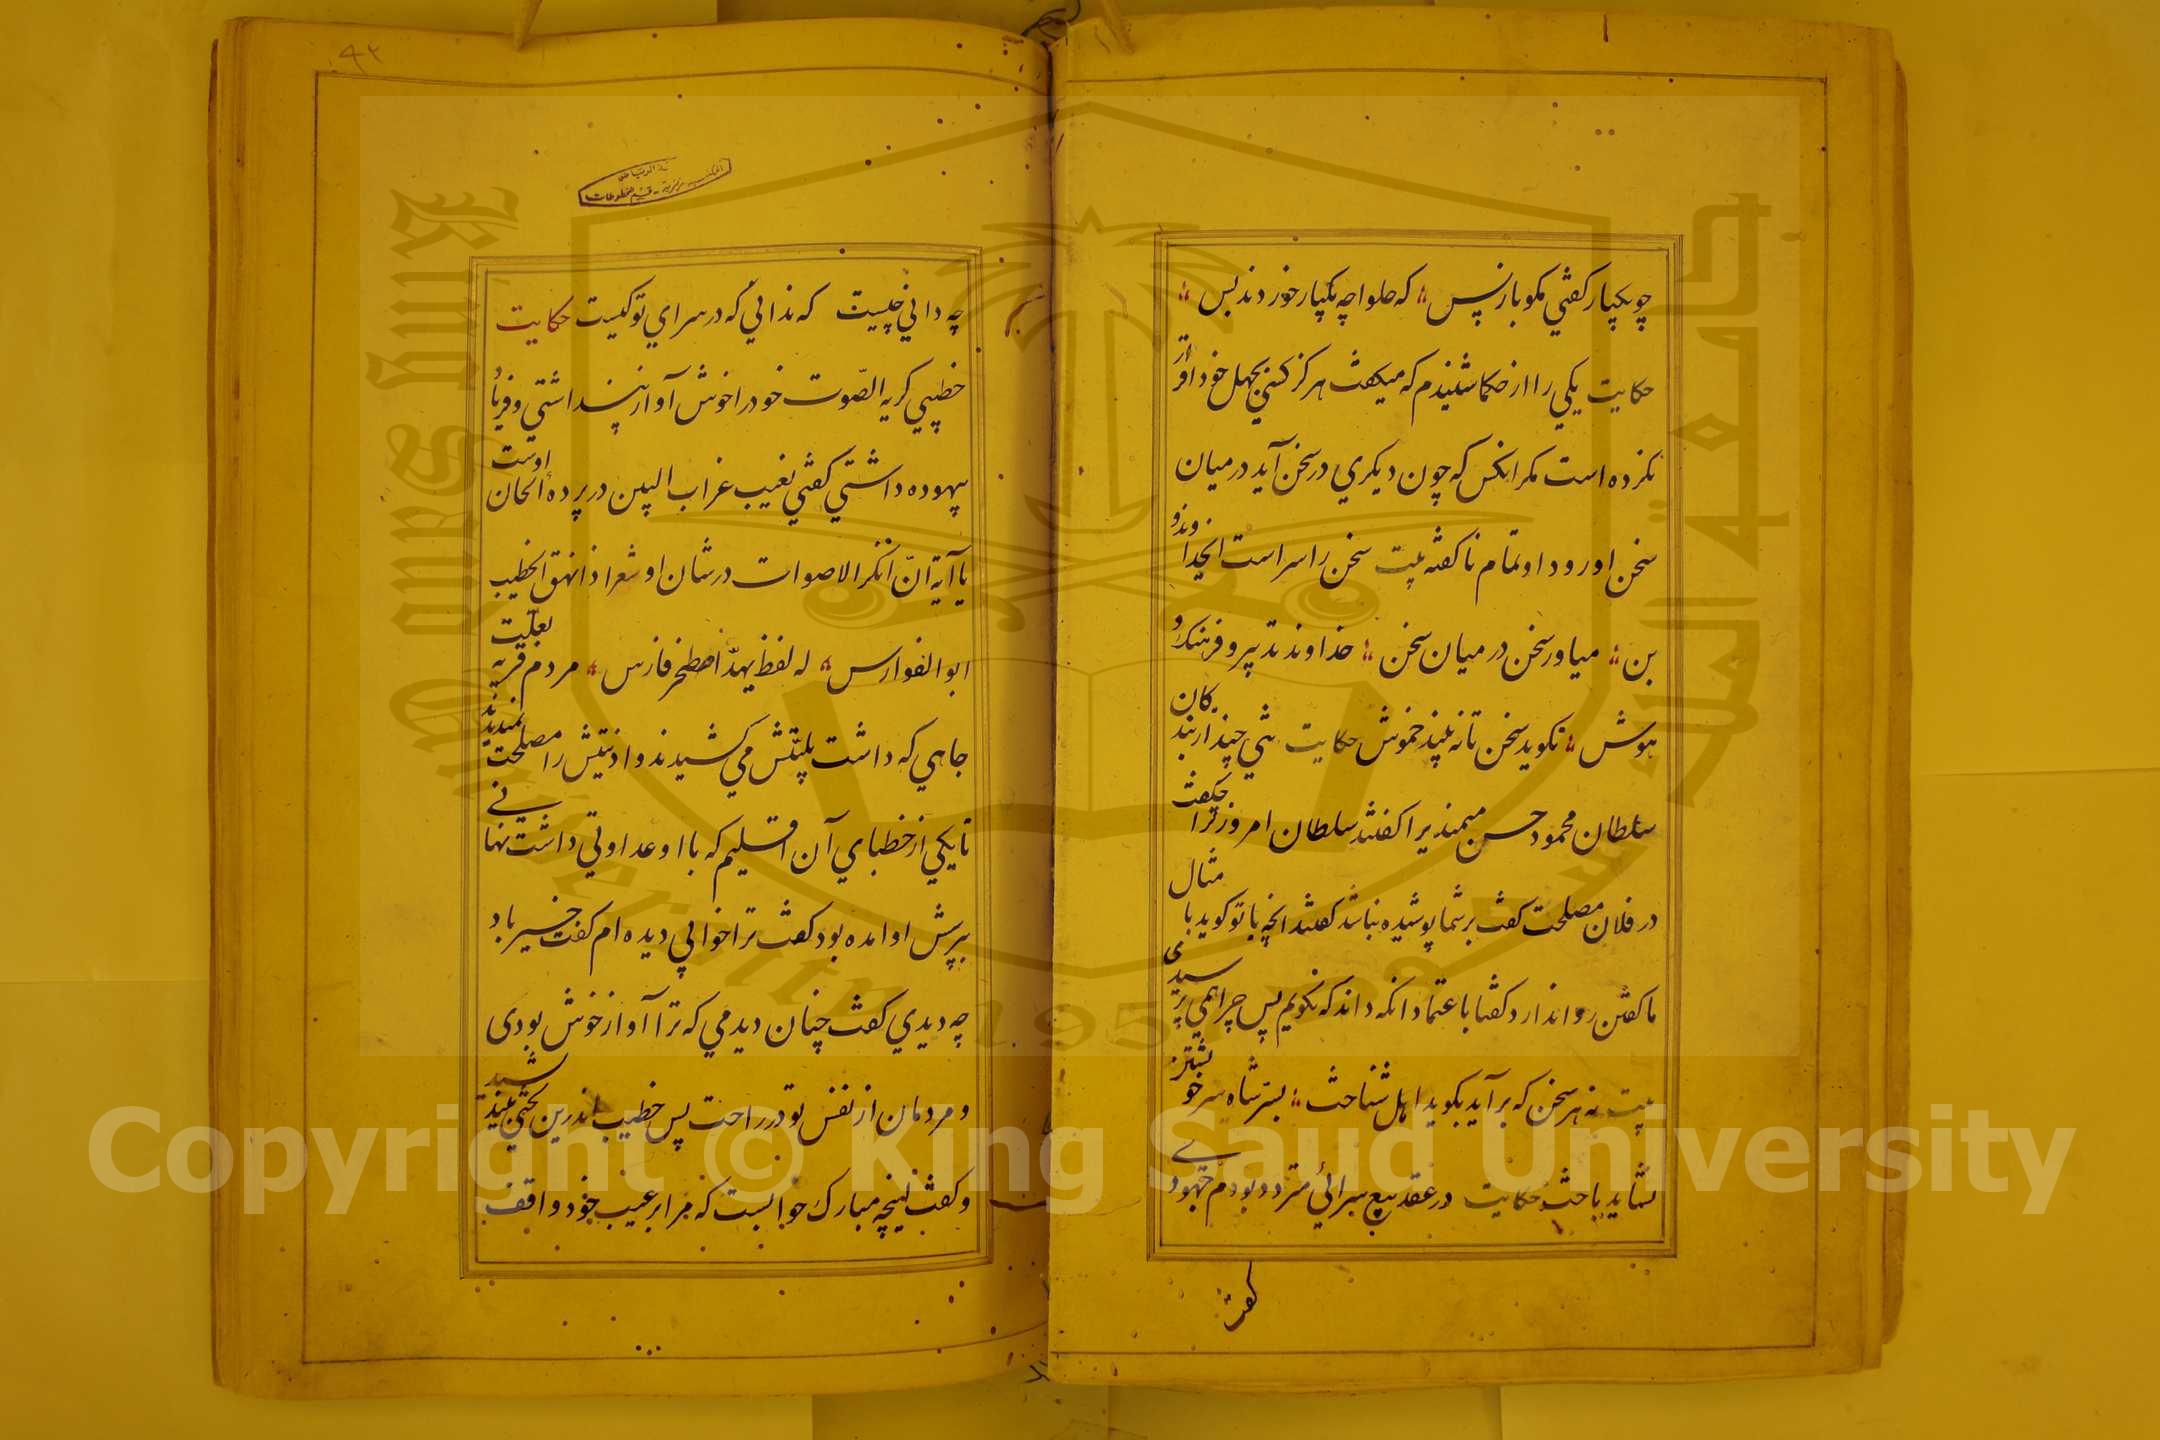 چو یکبار کفتي مکو باز پس که حلوا چه یکبار خوردند بس
حکایت یکي را از حکما شنیدم که میکفت هرکز کسي بجهل خود اقرار
نکرده است مکر انکس که چون دیکري در سخن آید در میان
سخن او رود او تمام ناکفته بیت سخن را سر است ایخداوند و
بن میاور سخن در میان سخن خداوند تدبیر و فرهنک و
هوش نکوید سخن تا نه بیند خموش حکایت تني چند از بندکان
سلطان محمود حسن میمندیرا کفتند سلطان امروز ترا چکفت
در فلان مصلحت کفت بر شما پوشیده نباشد کفتند انچه با تو کوید با مثال
ما کفتن روا ندارد کفتا باعتماد انکه داند که نکویم پس چرا همي پرسیدی
بیت نه هر سخن که برآید بکوید اهل شناخت بسر شاه سر خویشتن
نشاید باخت حکایت در عقد بیع سرائي متردد بودم جهودے
کفت
۹۲
چه داني چیست که نداني که در سراي تو کیست حکایت
خطیبي کریه الصّوت خود را خوش آواز پنداشتي و فریاد
بیهوده داشتي کفتي نغیب غراب البین در پرده الحان اوست
یا آیة انّ انکر الاصوات در شان او شعر اذا نهق الخطیب
ابو الفوارس له لفظ یهدّ اصطخر فارس مردم قریه بعلّت
جاهي که داشت بلیّتش مي کشیدند و اذیتش را مصلحت نمیدیدند
تا یکي از خطباي آن اقلیم که با او عداوتي داشت نهانے
بپرسش او امده بود کفت ترا خوابي دیده ام کفت خیر باد
چه دیدي کفت چنان دیدمي که ترا آواز خوش بودی
و مردمان از نفس تو در راحت پس خطیب اندرین لختي بیندیشید
و کفت اینچه مبارک خوابست که مرا بر عیب خود واقف
King Saud University
1957
جامعة الملك سعود
Copyright © King Saud University